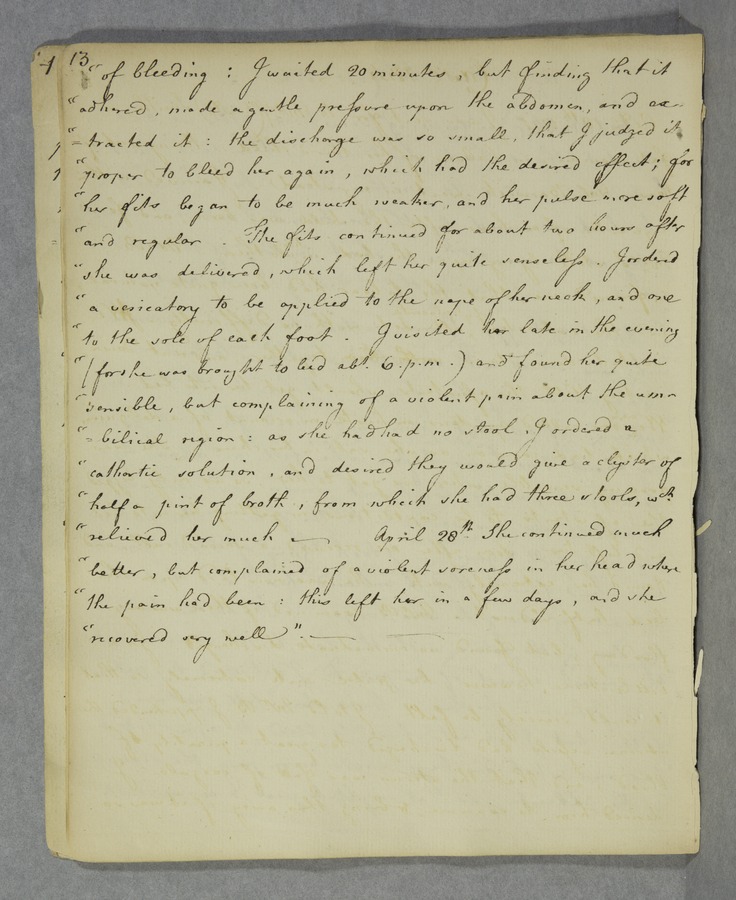 13
"of bleeding : I waited 20 minutes, but finding that it
"adhered, made a gentle pressure upon the abdomen, and ex-
"=tracted it : the discharge was so small, that I judged it
"proper to bleed her again, which had the desired effect; for
"her fits began to be much weaker, and her pulse more soft
"and regular. The fits continued for about two hours after
"she was delivered, which left her quite senseless. I ordered
"a vesicatory to be applied to the nape of her neck, and one
"to the sole of each foot. I visited her late in the evening
"(for she was brought to bed abt. 6.p.m.) and found her quite
"sensible, but complaining of a violent pain about the um-
"=bilical region : as she had had no stool, I ordered a
"cathartic solution, and desired they would give a clyster of
"half a pint of broth, from which she had three stools, wch.
"relieved her much — April 28th. She continued much
"better, but complained of a violent soreness in her head where
"the pain had been : this left her in a few days, and she
"recovered very well".— —